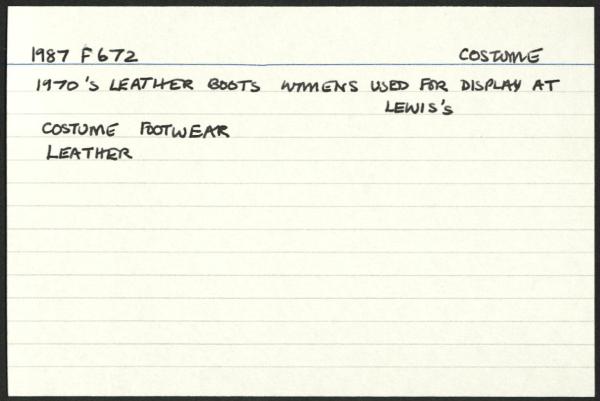 1987 F672 COSTUME
1970's LEATHER BOOTS WOMENS USED FOR DISPLAY AT
LEWIS'S
COSTUME FOOTWEAR
LEATHER